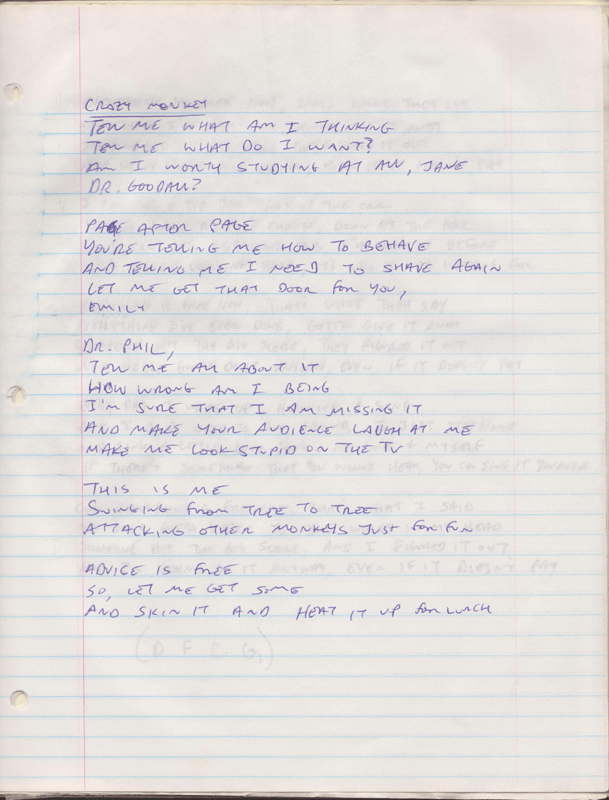 CRAZY MONKEY
TELL ME WHAT AM I THINKING
TELL ME WHAT DO I WANT?
AM I WORTH STUDYING AT ALL, JANE
DR. GOODALL?
PAGE AFTER PAGE
YOU'RE TELLING ME HOW TO BEHAVE
AND TELLING ME I NEED TO SHAVE AGAIN
LET ME GET THAT DOOR FOR YOU,
EMILY
DR. PHIL,
TELL ME ALL ABOUT IT
HOW WRONG AM I BEING
I'M SURE THAT I AM MISSING IT
AND MAKE YOUR AUDIENCE LAUGH AT ME
MAKE ME LOOK STUPID ON THE TV
THIS IS ME
SWINGING FROM TREE TO TREE
ATTACKING OTHER MONKEYS JUST FOR FUN
ADVICE IS FREE
SO, LET ME GET SOME
AND SKIN IT AND HEAT IT UP FOR LUNCH